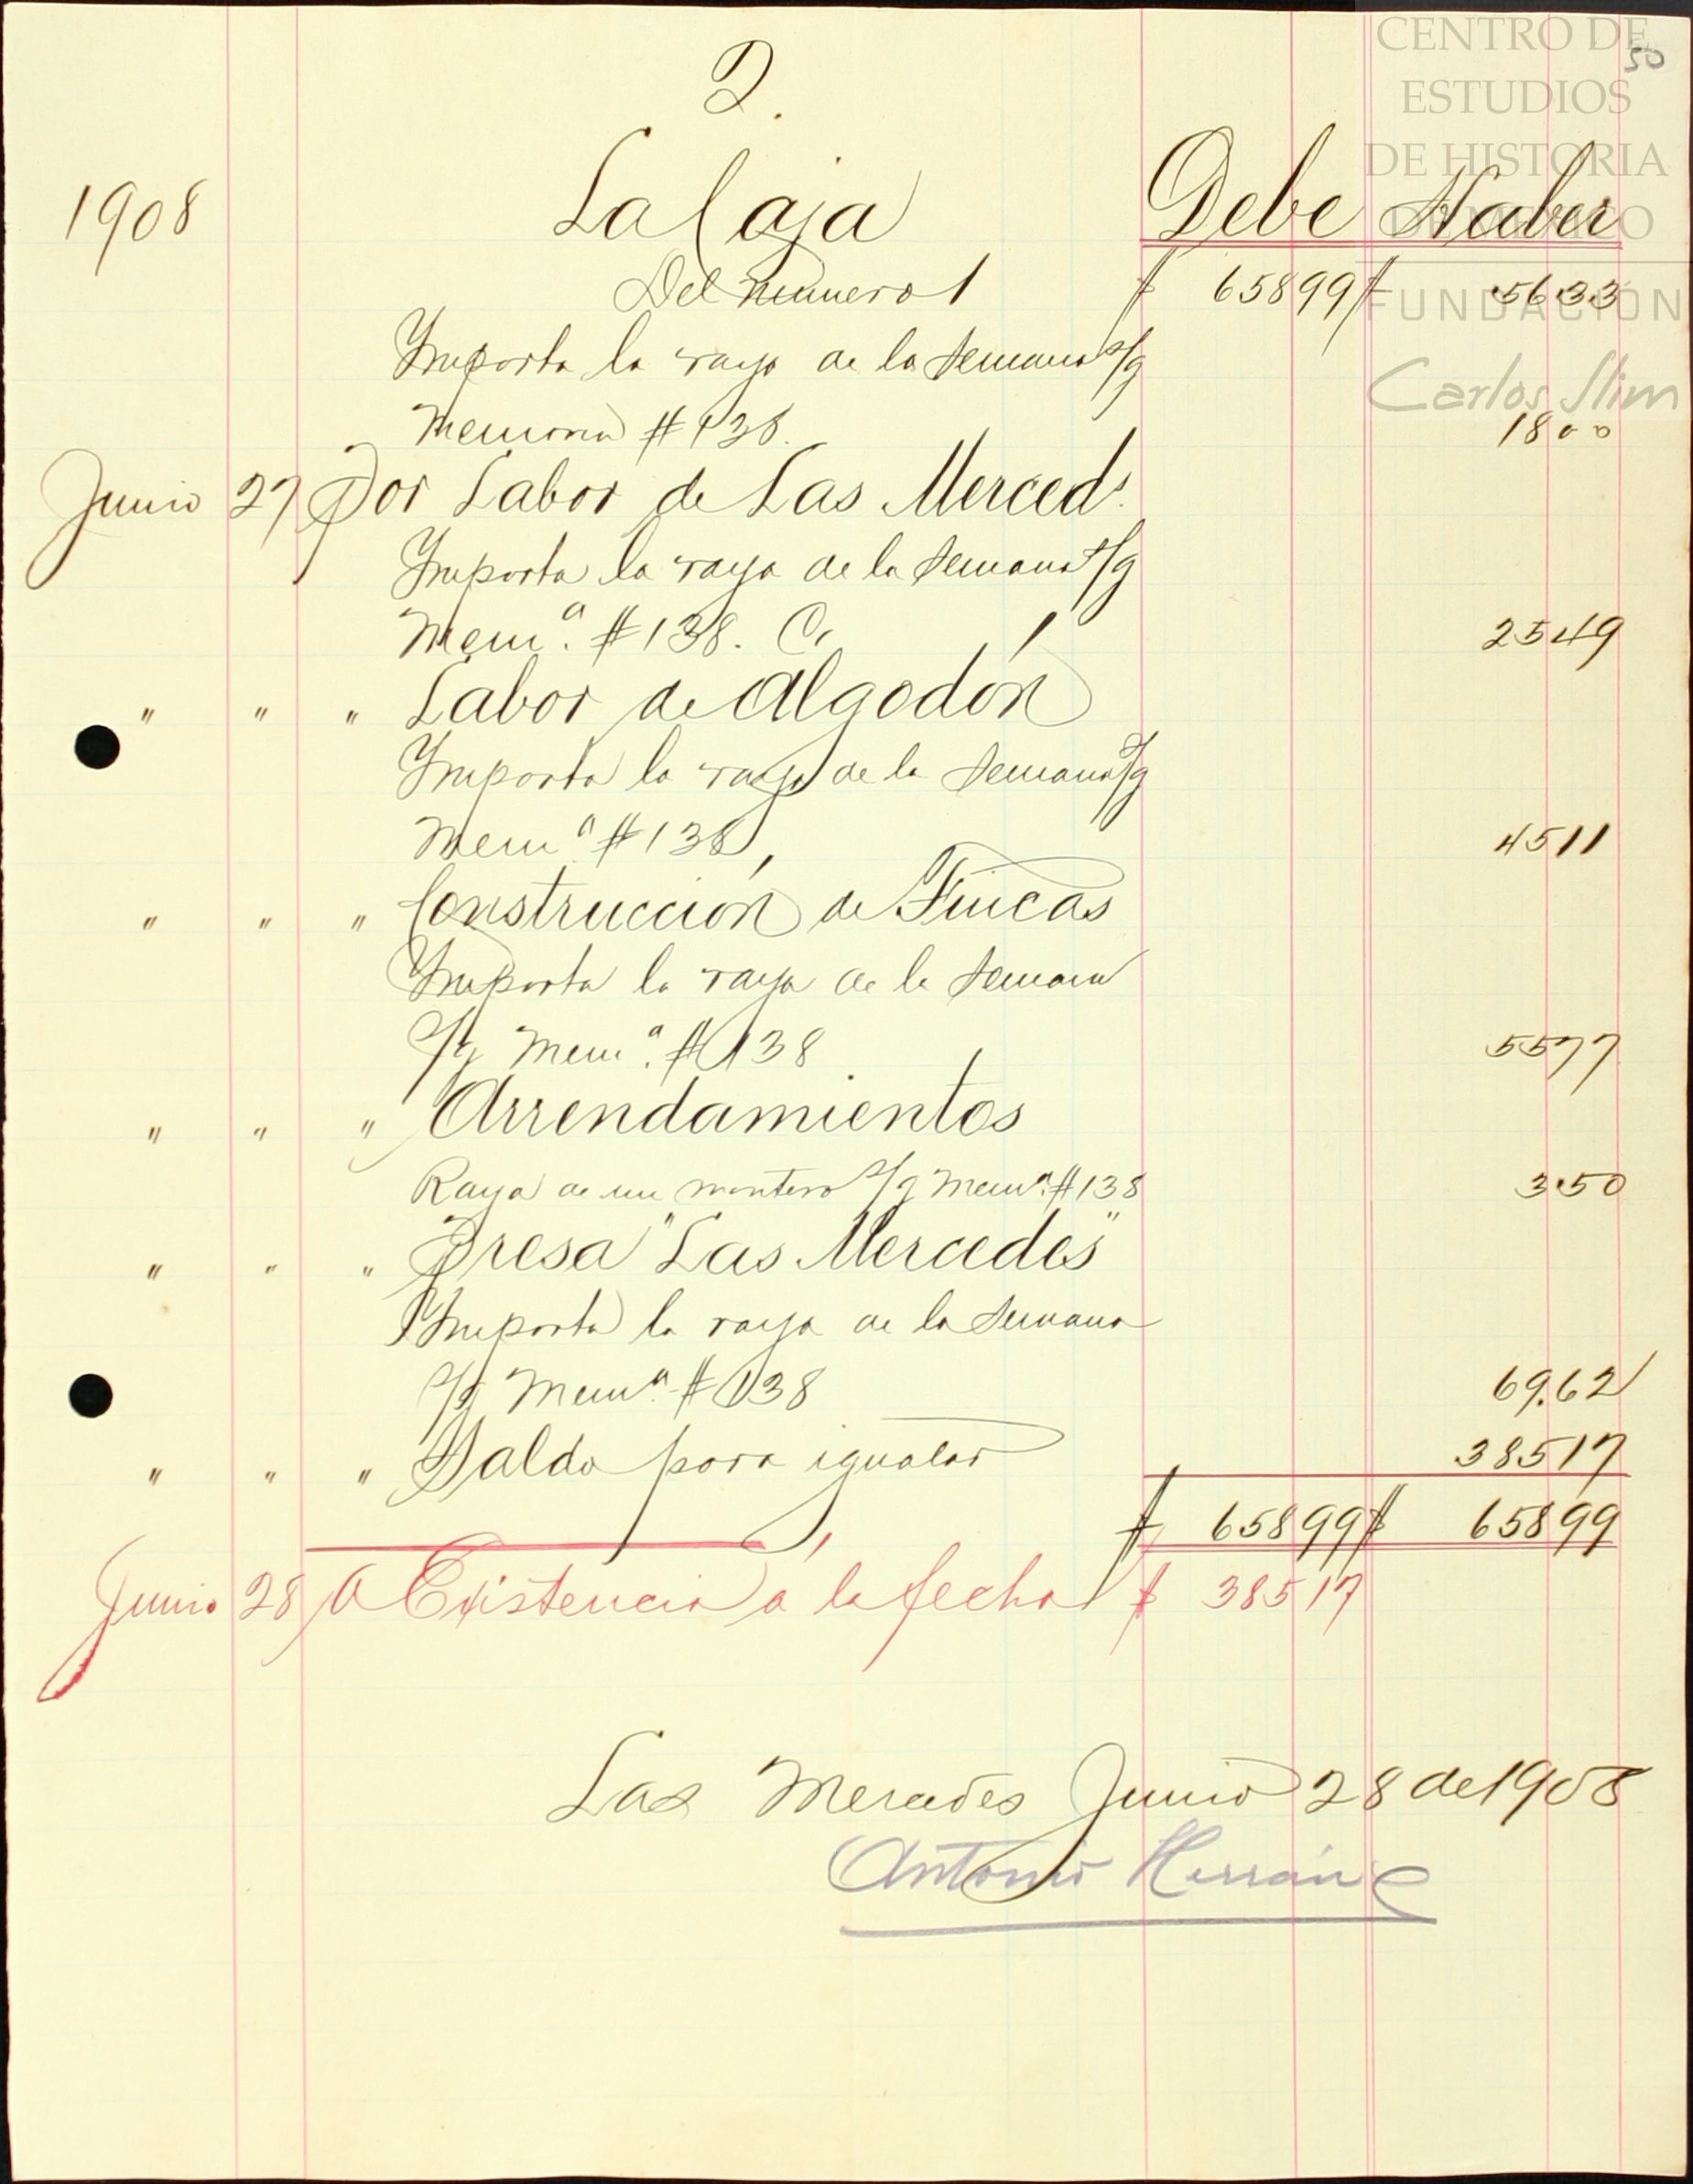 CENTRO DE
ESTUDIOS
DE HISTORIA
DE MÉXICO
FUNDACIÓN
Carlos Slim
50
2.
1908 La Caja Debe Haber
Del número 1 $ 658 99 $ 56 33
Importa la raya de la semana s/g
Memoria # 138. 18 00
Junio 27 Por Labor de Las Merceds.
Importa la raya de la semana s/g
Mema. # 138. 25 49
" " " Labor de Algodón
Importa la raya de la semana s/g
Mema # 138 45 11
" " " Construcción de Fincas
Importa la raya de la semana
s/g Mema. # 138 55 77
" " " Arrendamientos
Raya de un montero s/g Mema. # 138 3.50
" " " Presa "Las Mercedes"
Importa la raya de la semana
s/g Mema. # 138 69.62
" " " Saldo para igualar 385 17
$ 658 99 $ 658 99
Junio 28 A Existencia a la fecha $ 385 17
Las Mercedes Junio 28 de 1908
Antonio Herrán